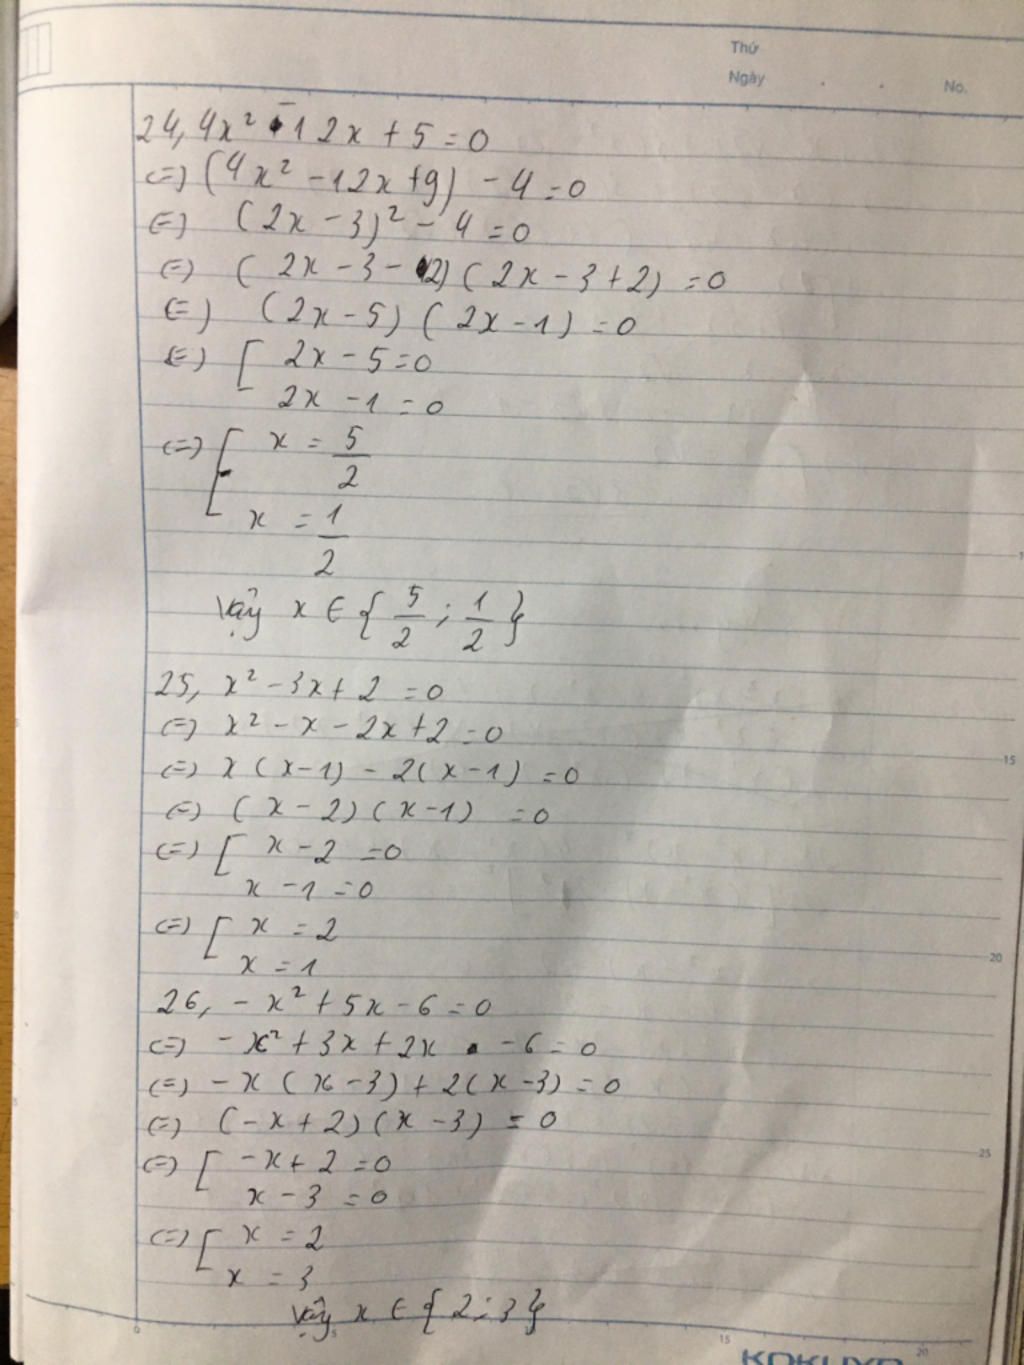 Thứ
Ngày . . No.
24, 4x² - 12x + 5 = 0
<=> (4x² - 12x + 9) - 4 = 0
<=> (2x - 3)² - 4 = 0
<=> (2x - 3 - 2)(2x - 3 + 2) = 0
<=> (2x - 5)(2x - 1) = 0
<=> [ 2x - 5 = 0
2x - 1 = 0
<=> [ x = 5/2
x = 1/2
Vậy x ∈ { 5/2 ; 1/2 }
25, x² - 3x + 2 = 0
<=> x² - x - 2x + 2 = 0
<=> x(x - 1) - 2(x - 1) = 0
<=> (x - 2)(x - 1) = 0
<=> [ x - 2 = 0
x - 1 = 0
<=> [ x = 2
x = 1
26, - x² + 5x - 6 = 0
<=> - x² + 3x + 2x - 6 = 0
<=> - x(x - 3) + 2(x - 3) = 0
<=> (- x + 2)(x - 3) = 0
<=> [ - x + 2 = 0
x - 3 = 0
<=> [ x = 2
x = 3
Vậy x ∈ { 2 ; 3 }
15
20
25
0 5 15 20
KOKUYO